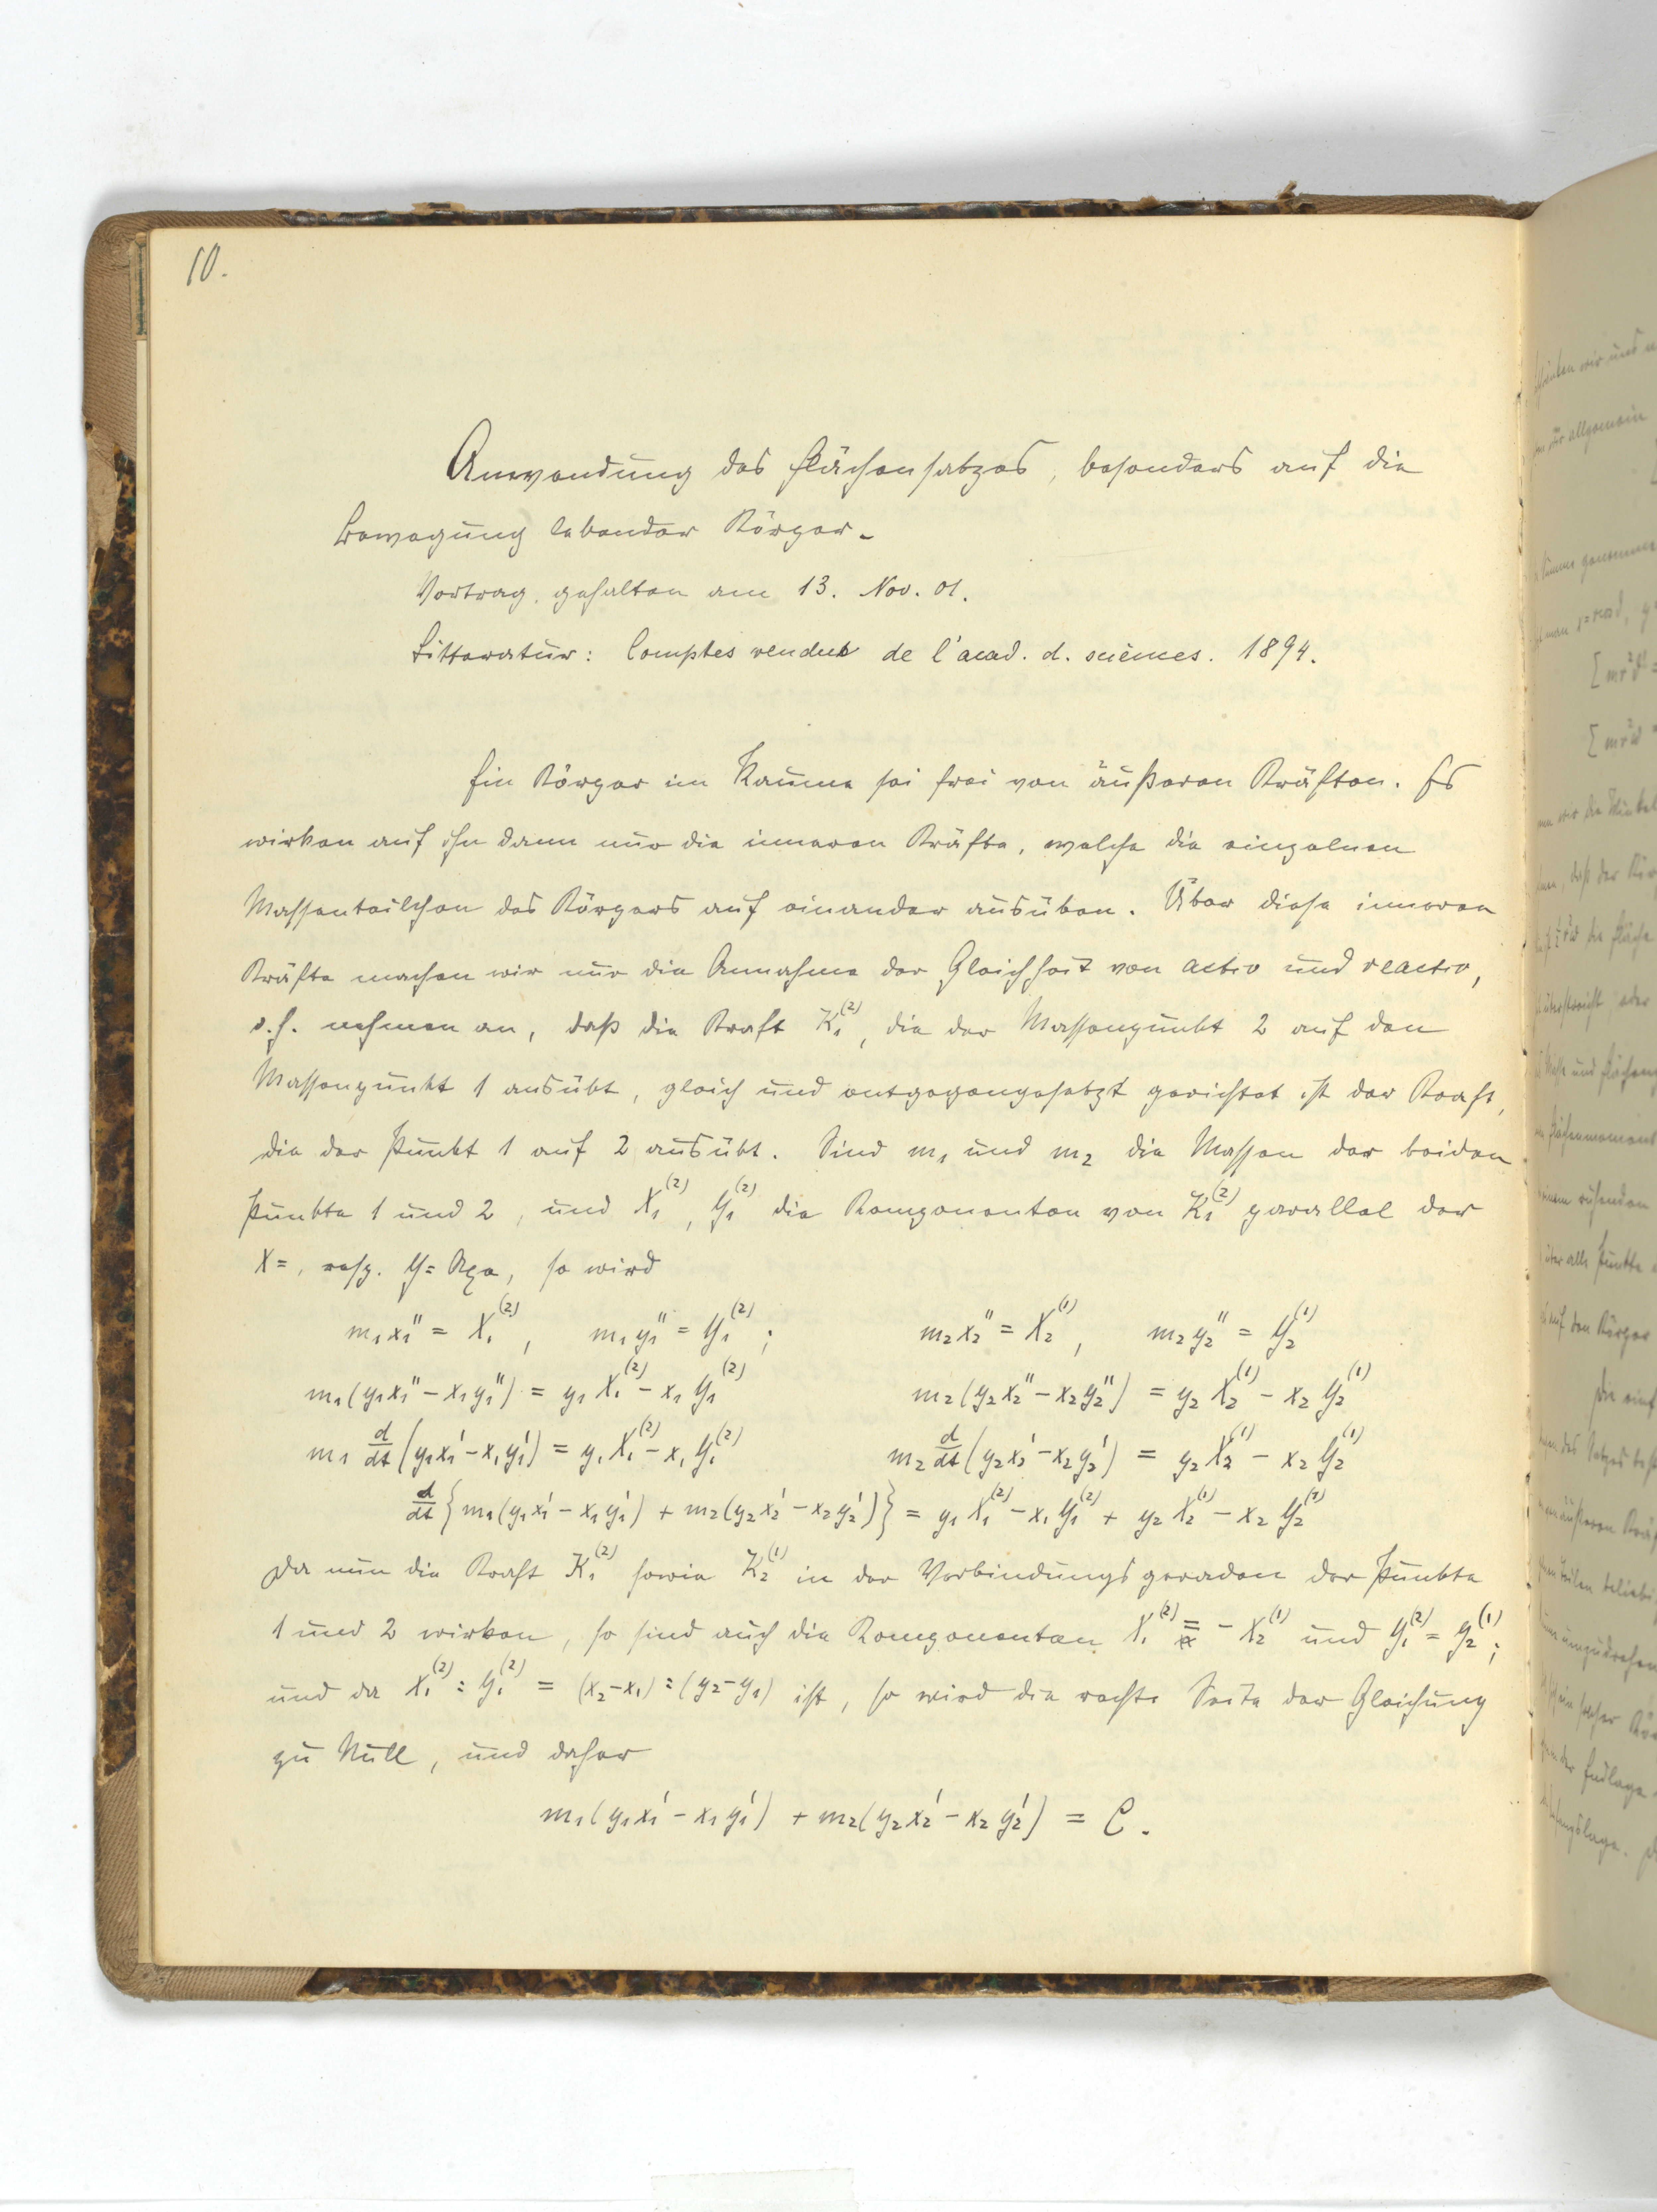 10.
Anwendung des Flächensatzes, besonders auf die
Bewegung lebender Körper.
Vortrag, gehalten am 13. Nov. 01.
Litteratur: Comptes rendus de l'acad. d. sciences. 1894.
Ein Körper im Raume sei frei von äußeren Kräften. Es
wirken auf ihn dann nur die inneren Kräfte, welche die einzelnen
Massenteilchen des Körpers auf einander ausüben. Über diese inneren
Kräfte machen wir nur die Annahme der Gleichheit von actio und reactio,
d.h. nehmen an, daß die Kraft K₁⁽²⁾, die der Massenpunkt 2 auf den
Massenpunkt 1 ausübt, gleich und entgegengesetzt gerichtet ist der Kraft,
die der Punkt 1 auf 2 ausübt. Sind m₁ und m₂ die Massen der beiden
Punkte 1 und 2, und X₁⁽²⁾, Y₁⁽²⁾ die Komponenten von K₁⁽²⁾ parallel der
X=, resp. Y=Axe, so wird
m₁x₁'' = X₁⁽²⁾, m₁y₁'' = Y₁⁽²⁾; m₂x₂'' = X₂⁽¹⁾, m₂y₂'' = Y₂⁽¹⁾
m₁(y₁x₁''−x₁y₁'') = y₁X₁⁽²⁾−x₁Y₁⁽²⁾ m₂(y₂x₂''−x₂y₂'') = y₂X₂⁽¹⁾−x₂Y₂⁽¹⁾
m₁ d/dt (y₁x₁'−x₁y₁') = y₁X₁⁽²⁾−x₁Y₁⁽²⁾ m₂ d/dt (y₂x₂'−x₂y₂') = y₂X₂⁽¹⁾−x₂Y₂⁽¹⁾
d/dt {m₁(y₁x₁'−x₁y₁') + m₂(y₂x₂'−x₂y₂')} = y₁X₁⁽²⁾−x₁Y₁⁽²⁾ + y₂X₂⁽¹⁾−x₂Y₂⁽¹⁾
Da nun die Kraft K₁⁽²⁾ sowie K₂⁽¹⁾ in der Verbindungsgeraden der Punkte
1 und 2 wirken, so sind auch die Komponenten X₁⁽²⁾ = −X₂⁽¹⁾ und Y₁⁽²⁾ = Y₂⁽¹⁾;
und da X₁⁽²⁾ : Y₁⁽²⁾ = (x₂−x₁) : (y₂−y₁) ist, so wird die rechte Seite der Gleichung
zu Null, und daher
m₁(y₁x₁'−x₁y₁') + m₂(y₂x₂'−x₂y₂') = C.